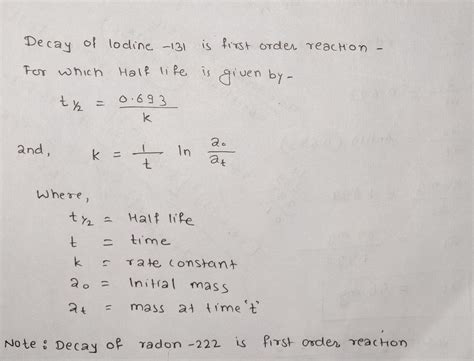 Decay of Iodine -131 is first order reaction -
For which Half life is given by -
t ½ = 0.693 / k
and, k = 1/t ln a₀/aₜ
Where,
t ½ = Half life
t = time
k = rate constant
a₀ = Initial mass
aₜ = mass at time 't'
Note : Decay of radon -222 is first order reaction